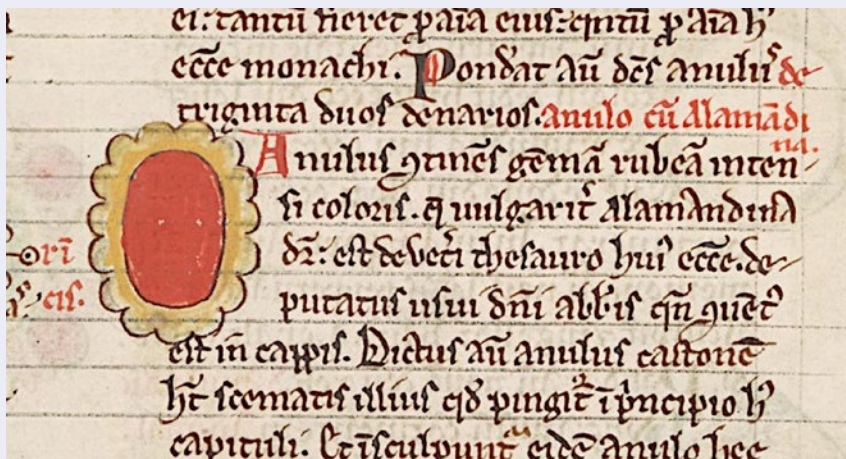 ei: tantū fieret p aīa eius: quitū p aīa hꝰ
ecce monachi. Pondat aū dc̄s anulus de
triginta duos denarios. anulo cū Alamādi
na.
Anulus ꝯtinēs gēmā rubeā inten-
si coloris. q uulgarit᷑ Alamandina
dr̄: est de vet̄i thesauro huiꝰ ecce. de-
putatus usui dn̄i abb̄is qn̄
orī
cis.
est in cappis. Dictus aū anulus castonē
ht̄ scematis illius qđ pingit᷑ ī pncipio hꝰ
capituli. Et īsculpunt᷑ eidē anulo hee